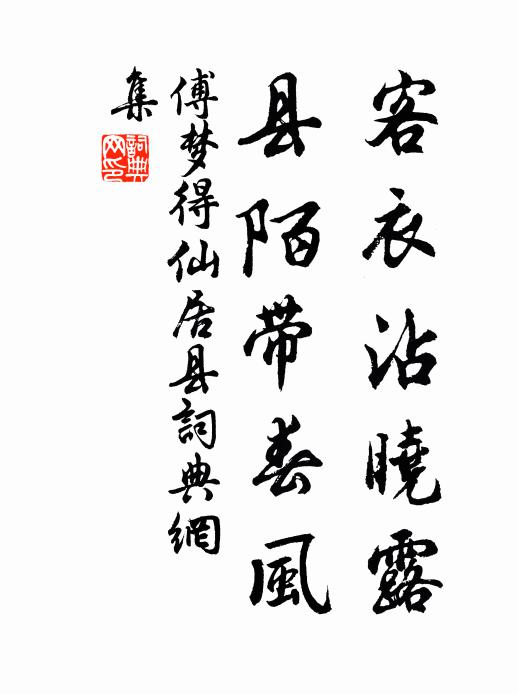 客衣沾曉露
县陌带春風
傅梦得仙居县詞典網
集
詞典网印